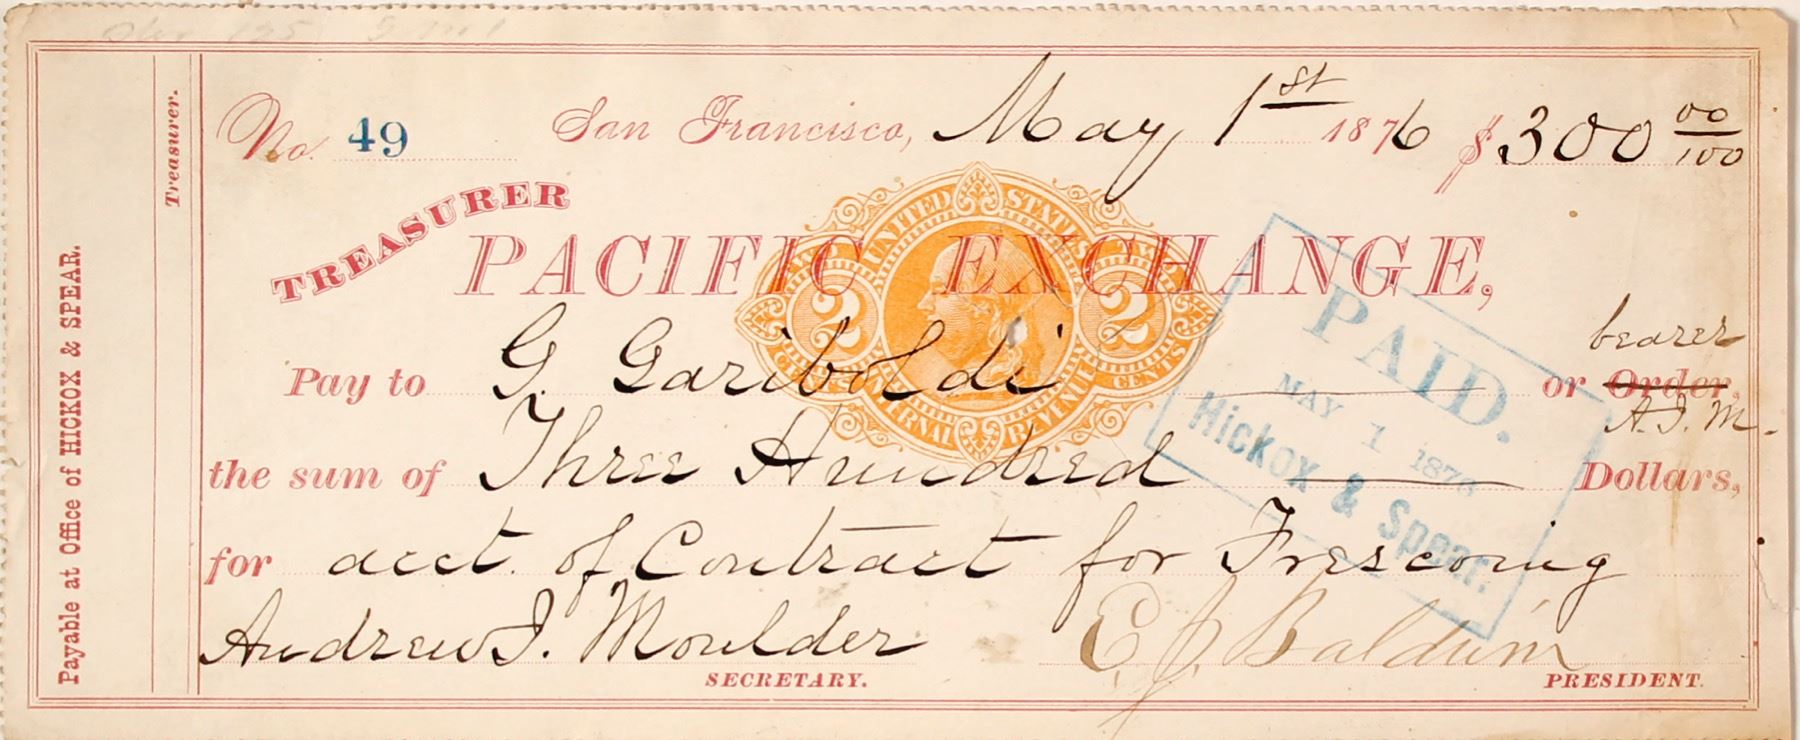 No. 49 San Francisco, May 1st 1876 $300 00/100
TREASURER
PACIFIC EXCHANGE,
UNITED STATES
TWO CENTS 2 2 TWO CENTS
INTERNAL REVENUE
bearer
Pay to G. Gariboldi or Order,
A.J.M.
the sum of Three Hundred Dollars,
for acct. of Contract for Frescoing
Andrew J. Moulder E J Baldwin
SECRETARY. PRESIDENT.
PAID.
MAY 1 1876
Hickox & Spear.
Treasurer.
Payable at Office of HICKOX & SPEAR.